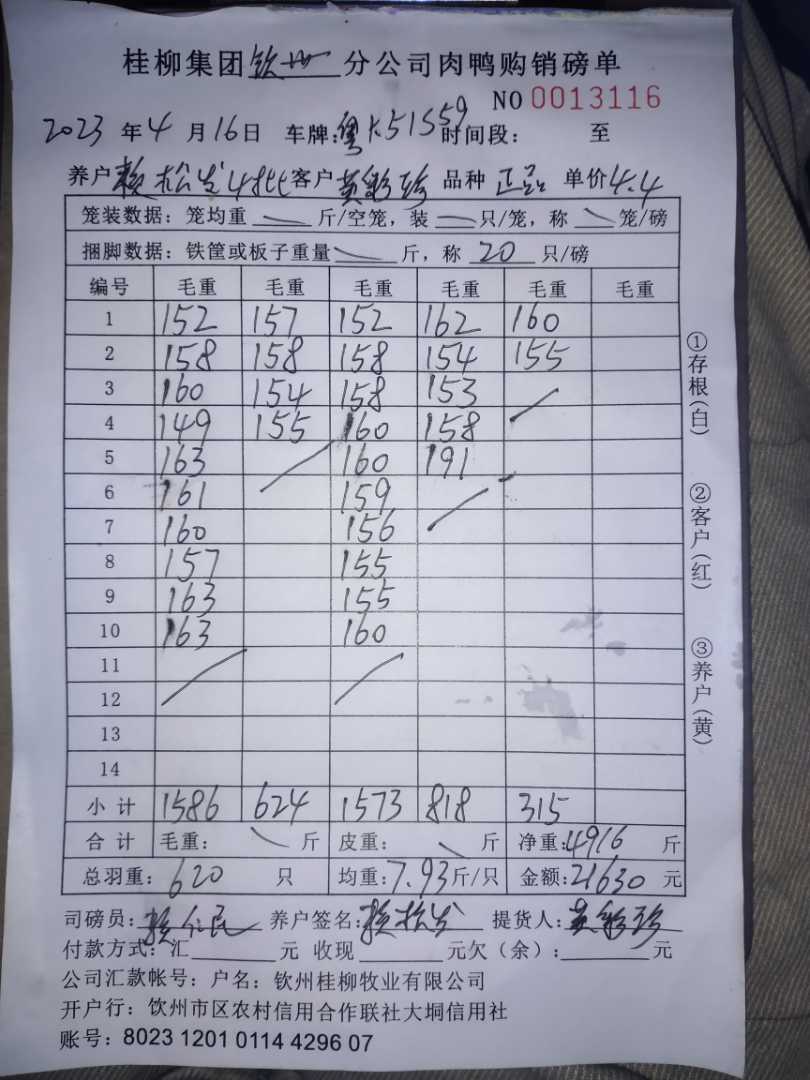 桂柳集团钦州分公司肉鸭购销磅单
NO 0013116
2023年4月16日 车牌:粤K51S59 时间段: 至
养户 赖松发4批 客户 黄彩珍 品种 正品 单价 4.4
笼装数据: 笼均重 斤/空笼, 装 只/笼, 称 笼/磅
捆脚数据: 铁筐或板子重量 斤, 称 20 只/磅
编号 毛重 毛重 毛重 毛重 毛重 毛重
1 152 157 152 162 160
2 158 158 158 154 155
3 160 154 158 153
4 149 155 160 158
5 163 160 191
6 161 159
7 160 156
8 157 155
9 163 155
10 163 160
11
12
13
14
小计 1586 624 1573 818 315
合计 毛重: 斤 皮重: 斤 净重:4916 斤
总羽重: 620 只 均重:7.93斤/只 金额:21630 元
司磅员: 赖仁民 养户签名: 赖松发 提货人: 黄彩珍
付款方式: 汇 元 收现 元欠(余): 元
公司汇款帐号: 户名: 钦州桂柳牧业有限公司
开户行: 钦州市区农村信用合作联社大垌信用社
账号: 8023 1201 0114 4296 07
①存根(白)
②客户(红)
③养户(黄)